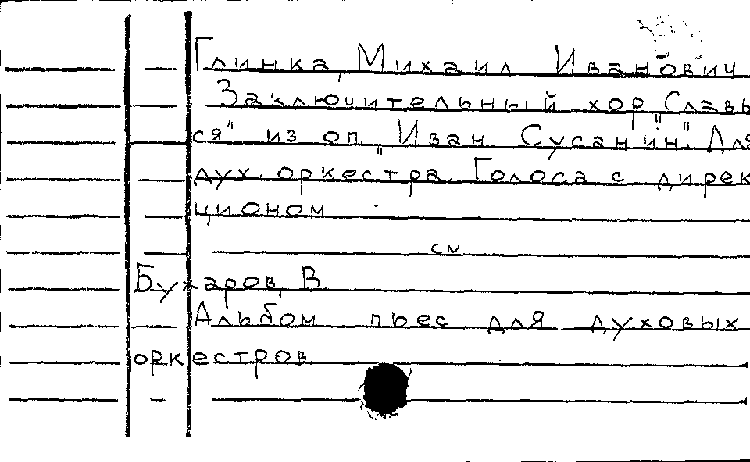 Глинка, Михаил Иванович
Заключительный хор „Славь
ся" из оп. „Иван Сусанин". Для
дух. оркестра. Голоса с дирек
ционом
см
Бухаров, В.
Альбом пьес для духовых
оркестров